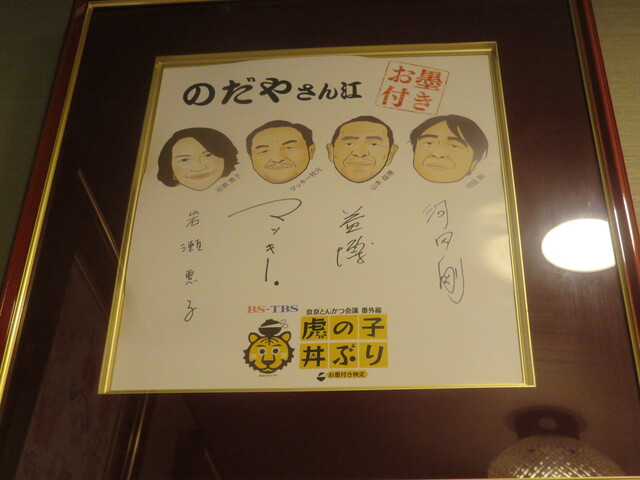 のだやさん江
お墨
付き
岩瀬恵子
マッキー牧元
山本益博
河田剛
岩瀬恵子
マッキー.
益博
河田剛
BS-TBS 東京とんかつ会議 番外編
虎の子
丼ぶり
お墨付き検定